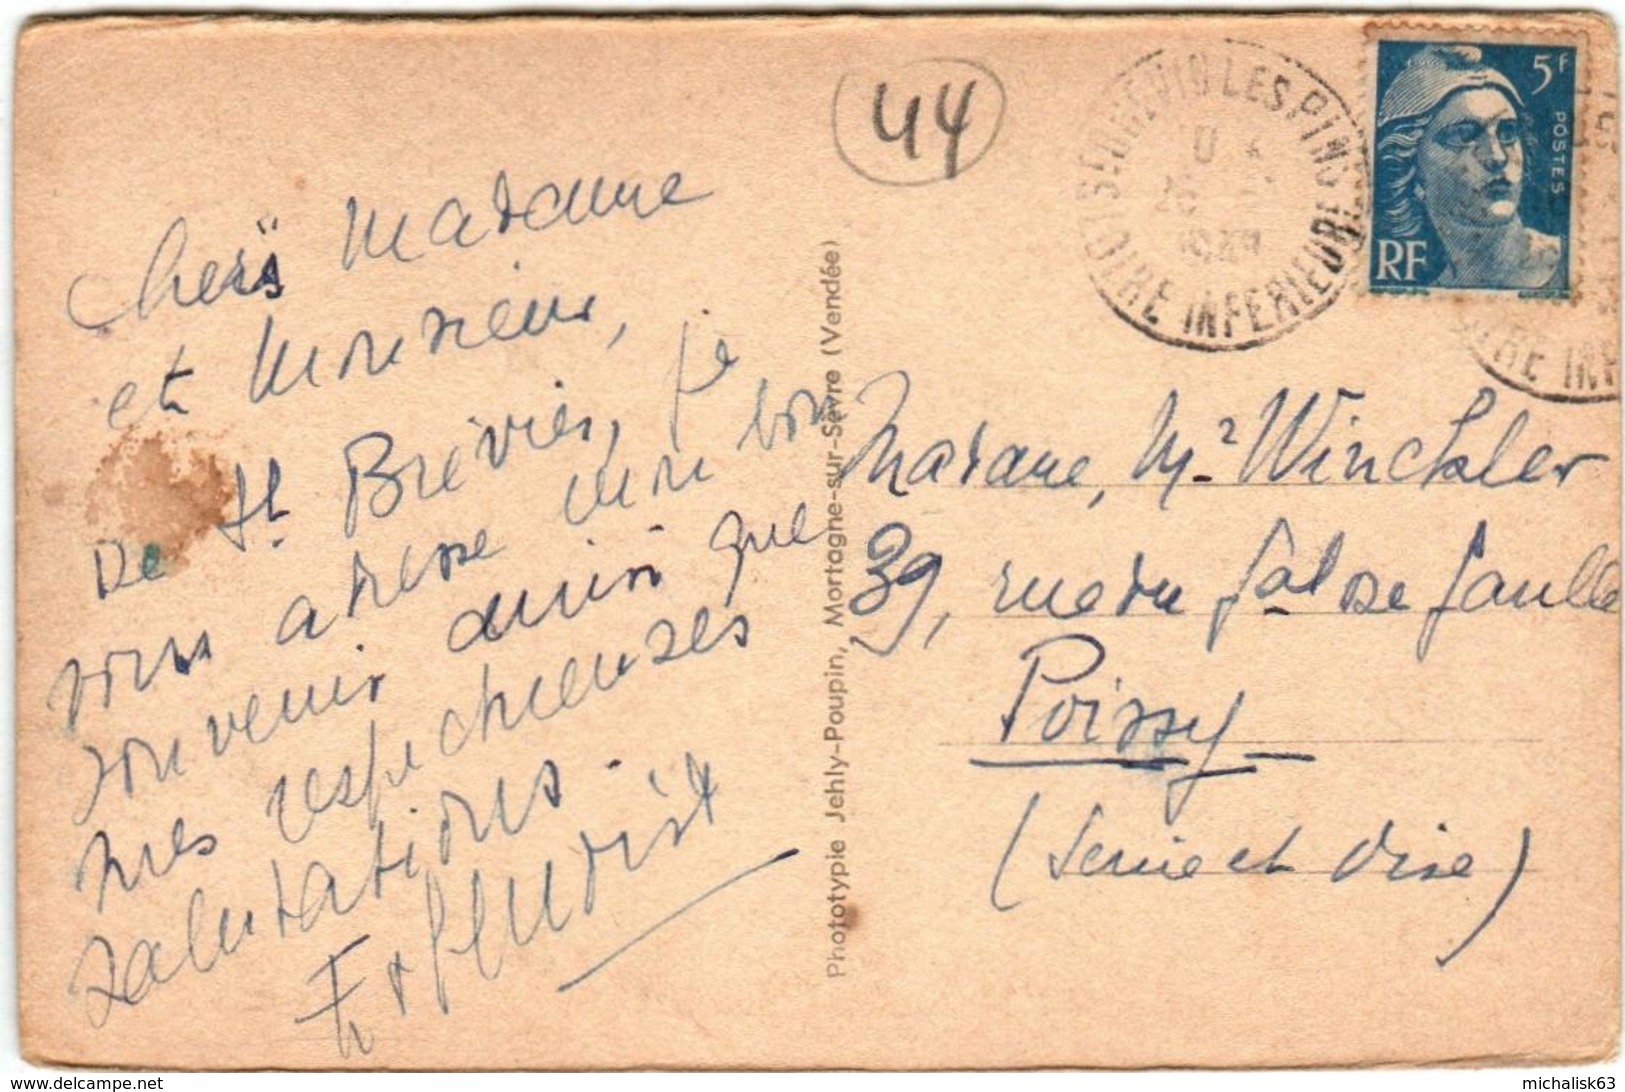 44
Chers Madame
et Monsieur,
De St. Brévin, je
vous adresse mon bon
souvenir ainsi que
mes respectueuses
salutations.
Phototypie Jehly-Poupin, Mortagne-sur-Sèvre (Vendée)
LES PINS
LOIRE INFERIEURE
5F
POSTES
RF
OIRE INF
Madame, Mr Winckler
39, rue du Gal de Gaulle
Poissy
(Seine et Oise)
www.delcampe.net
michalisk63